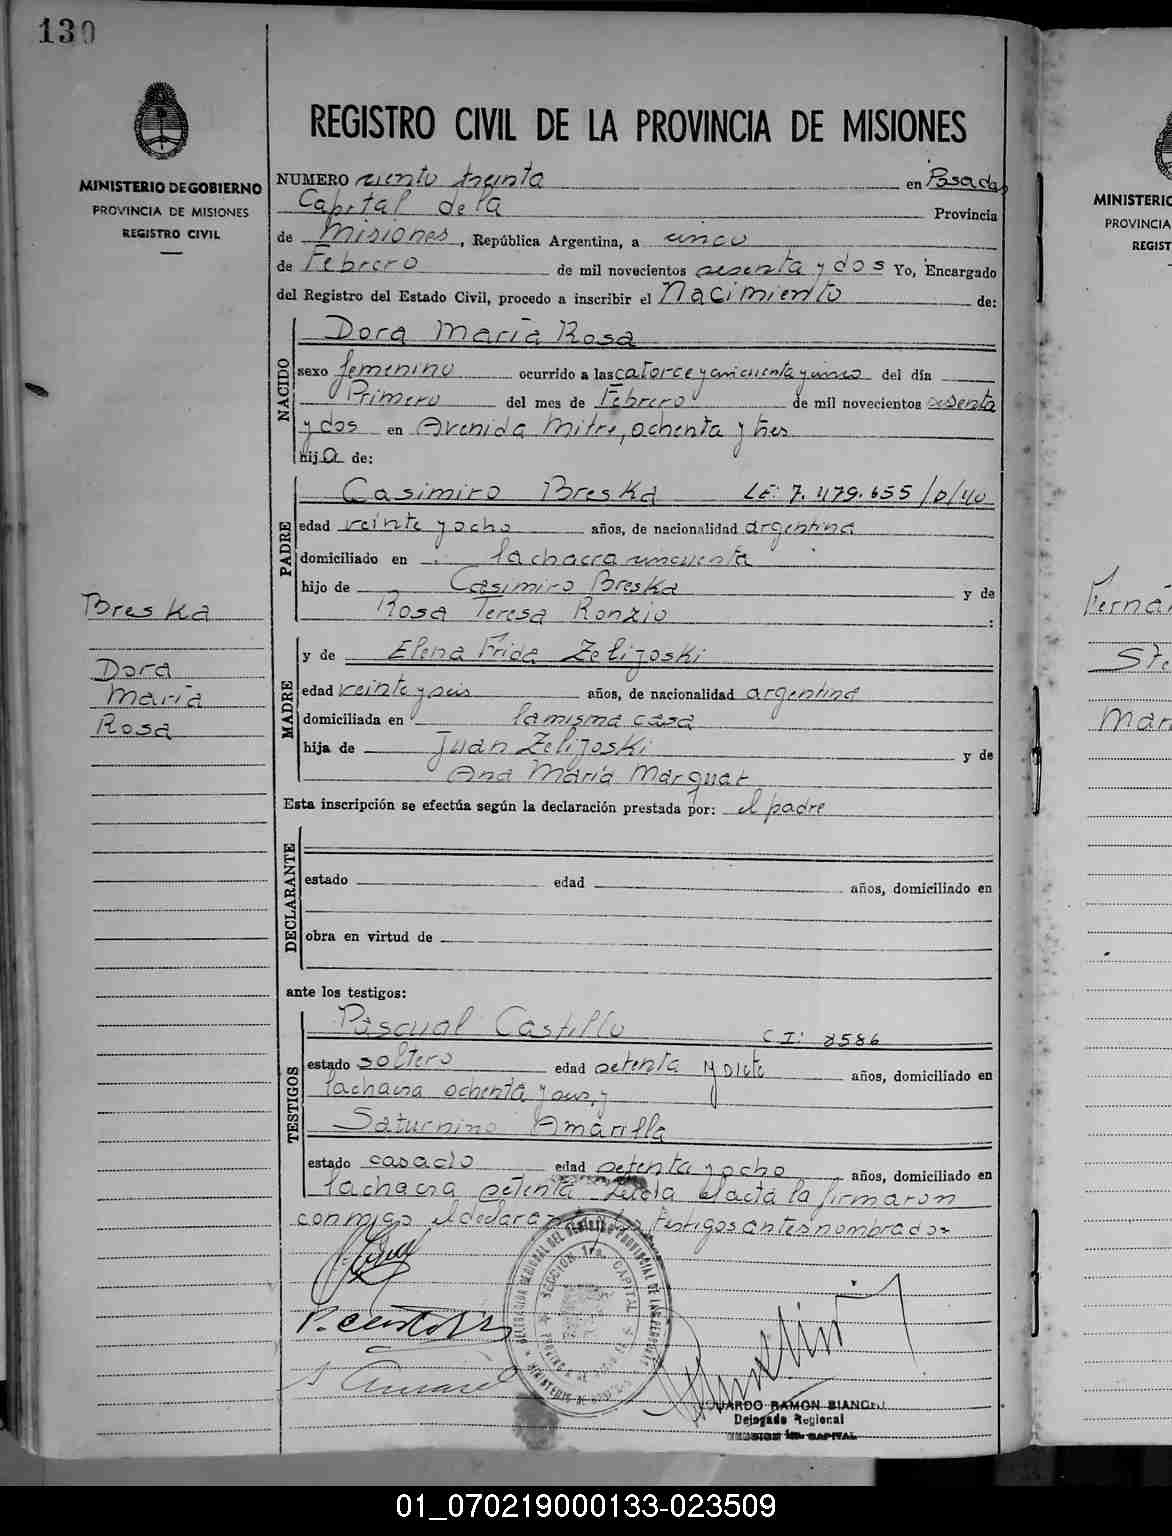 130
MINISTERIO DE GOBIERNO
PROVINCIA DE MISIONES
REGISTRO CIVIL
REGISTRO CIVIL DE LA PROVINCIA DE MISIONES
NUMERO ciento treinta en Posadas
Capital de la Provincia
de Misiones, República Argentina, a cinco
de Febrero de mil novecientos sesenta y dos Yo, Encargado
del Registro del Estado Civil, procedo a inscribir el Nacimiento de:
NACIDO
Dora María Rosa
sexo femenino ocurrido a las catorce y cincuenta y cinco del día
Primero del mes de Febrero de mil novecientos sesenta
y dos en Avenida Mitre, ochenta y tres
hija de:
PADRE
Casimiro Breska LE: 7.479.655 /D/40
edad veinte y ocho años, de nacionalidad argentina
domiciliado en la chacra cincuenta
hijo de Casimiro Breska y de
Rosa Teresa Ronzio :
Breska
Dora
María
Rosa
MADRE
y de Elena Frida Zelijoski
edad veinte y seis años, de nacionalidad argentina
domiciliada en la misma casa
hija de Juan Zelijoski y de
Ana María Marquat
Esta inscripción se efectúa según la declaración prestada por: el padre
DECLARANTE
estado edad años, domiciliado en
obra en virtud de
ante los testigos:
TESTIGOS
Pascual Castillo C I: 8586
estado soltero edad setenta y siete años, domiciliado en
la chacra ochenta y
Saturnino Amarilla
estado casado edad setenta y ocho años, domiciliado en
la chacra setenta Leida el acta la firmaron
conmigo el declarante testigos antes nombrados
SECCION 1ra. CAPITAL
EDUARDO RAMON BIANCHI
Delegado Regional
SECCION 1ra. CAPITAL
MINISTERIO
PROVINCIA
REGIST
Fernán
Ste
Mar
01_070219000133-023509